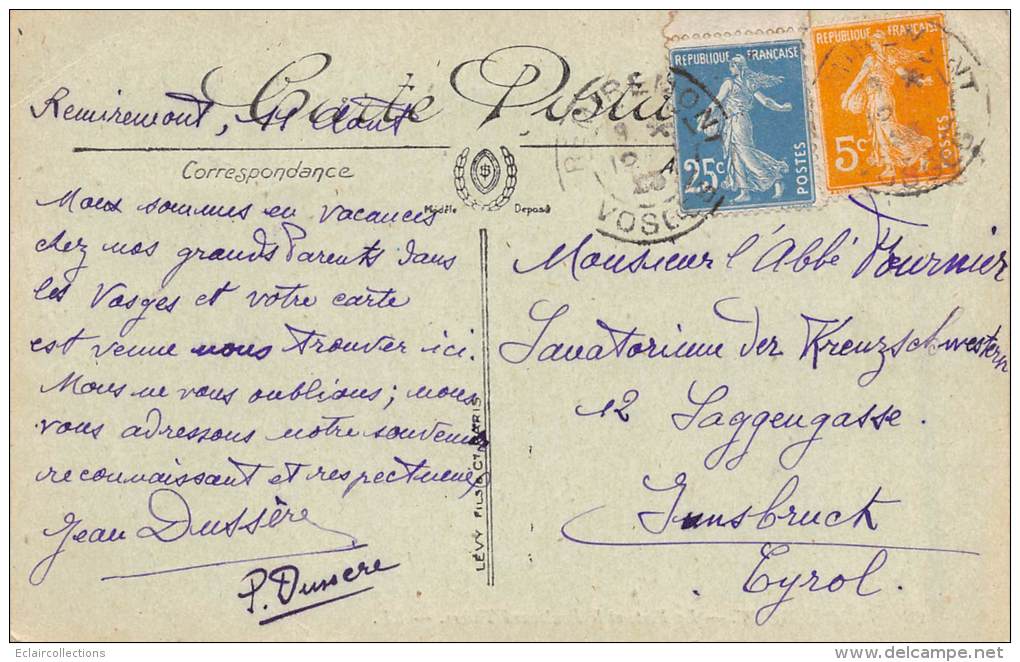 Carte Postale
Remiremont, 11 Août
Correspondance
Modèle Déposé
Nous sommes en vacances
chez nos grands Parents dans
les Vosges et votre carte
est venue nous trouver ici.
Nous ne vous oublions ; nous
vous adressons notre souvenir
reconnaissant et respectueux
Jean Dussère
P. Dussere
LÉVY FILS & Cie PARIS
REPUBLIQUE FRANÇAISE
25c
POSTES
REPUBLIQUE FRANÇAISE
5c
POSTES
REMIREMONT
VOSGES
Monsieur l'Abbé Fournier
Sanatorium der Kreuzschwestern
12 Saggengasse.
Innsbruck
Tyrol.
Eclaircollections
www.delcampe.net